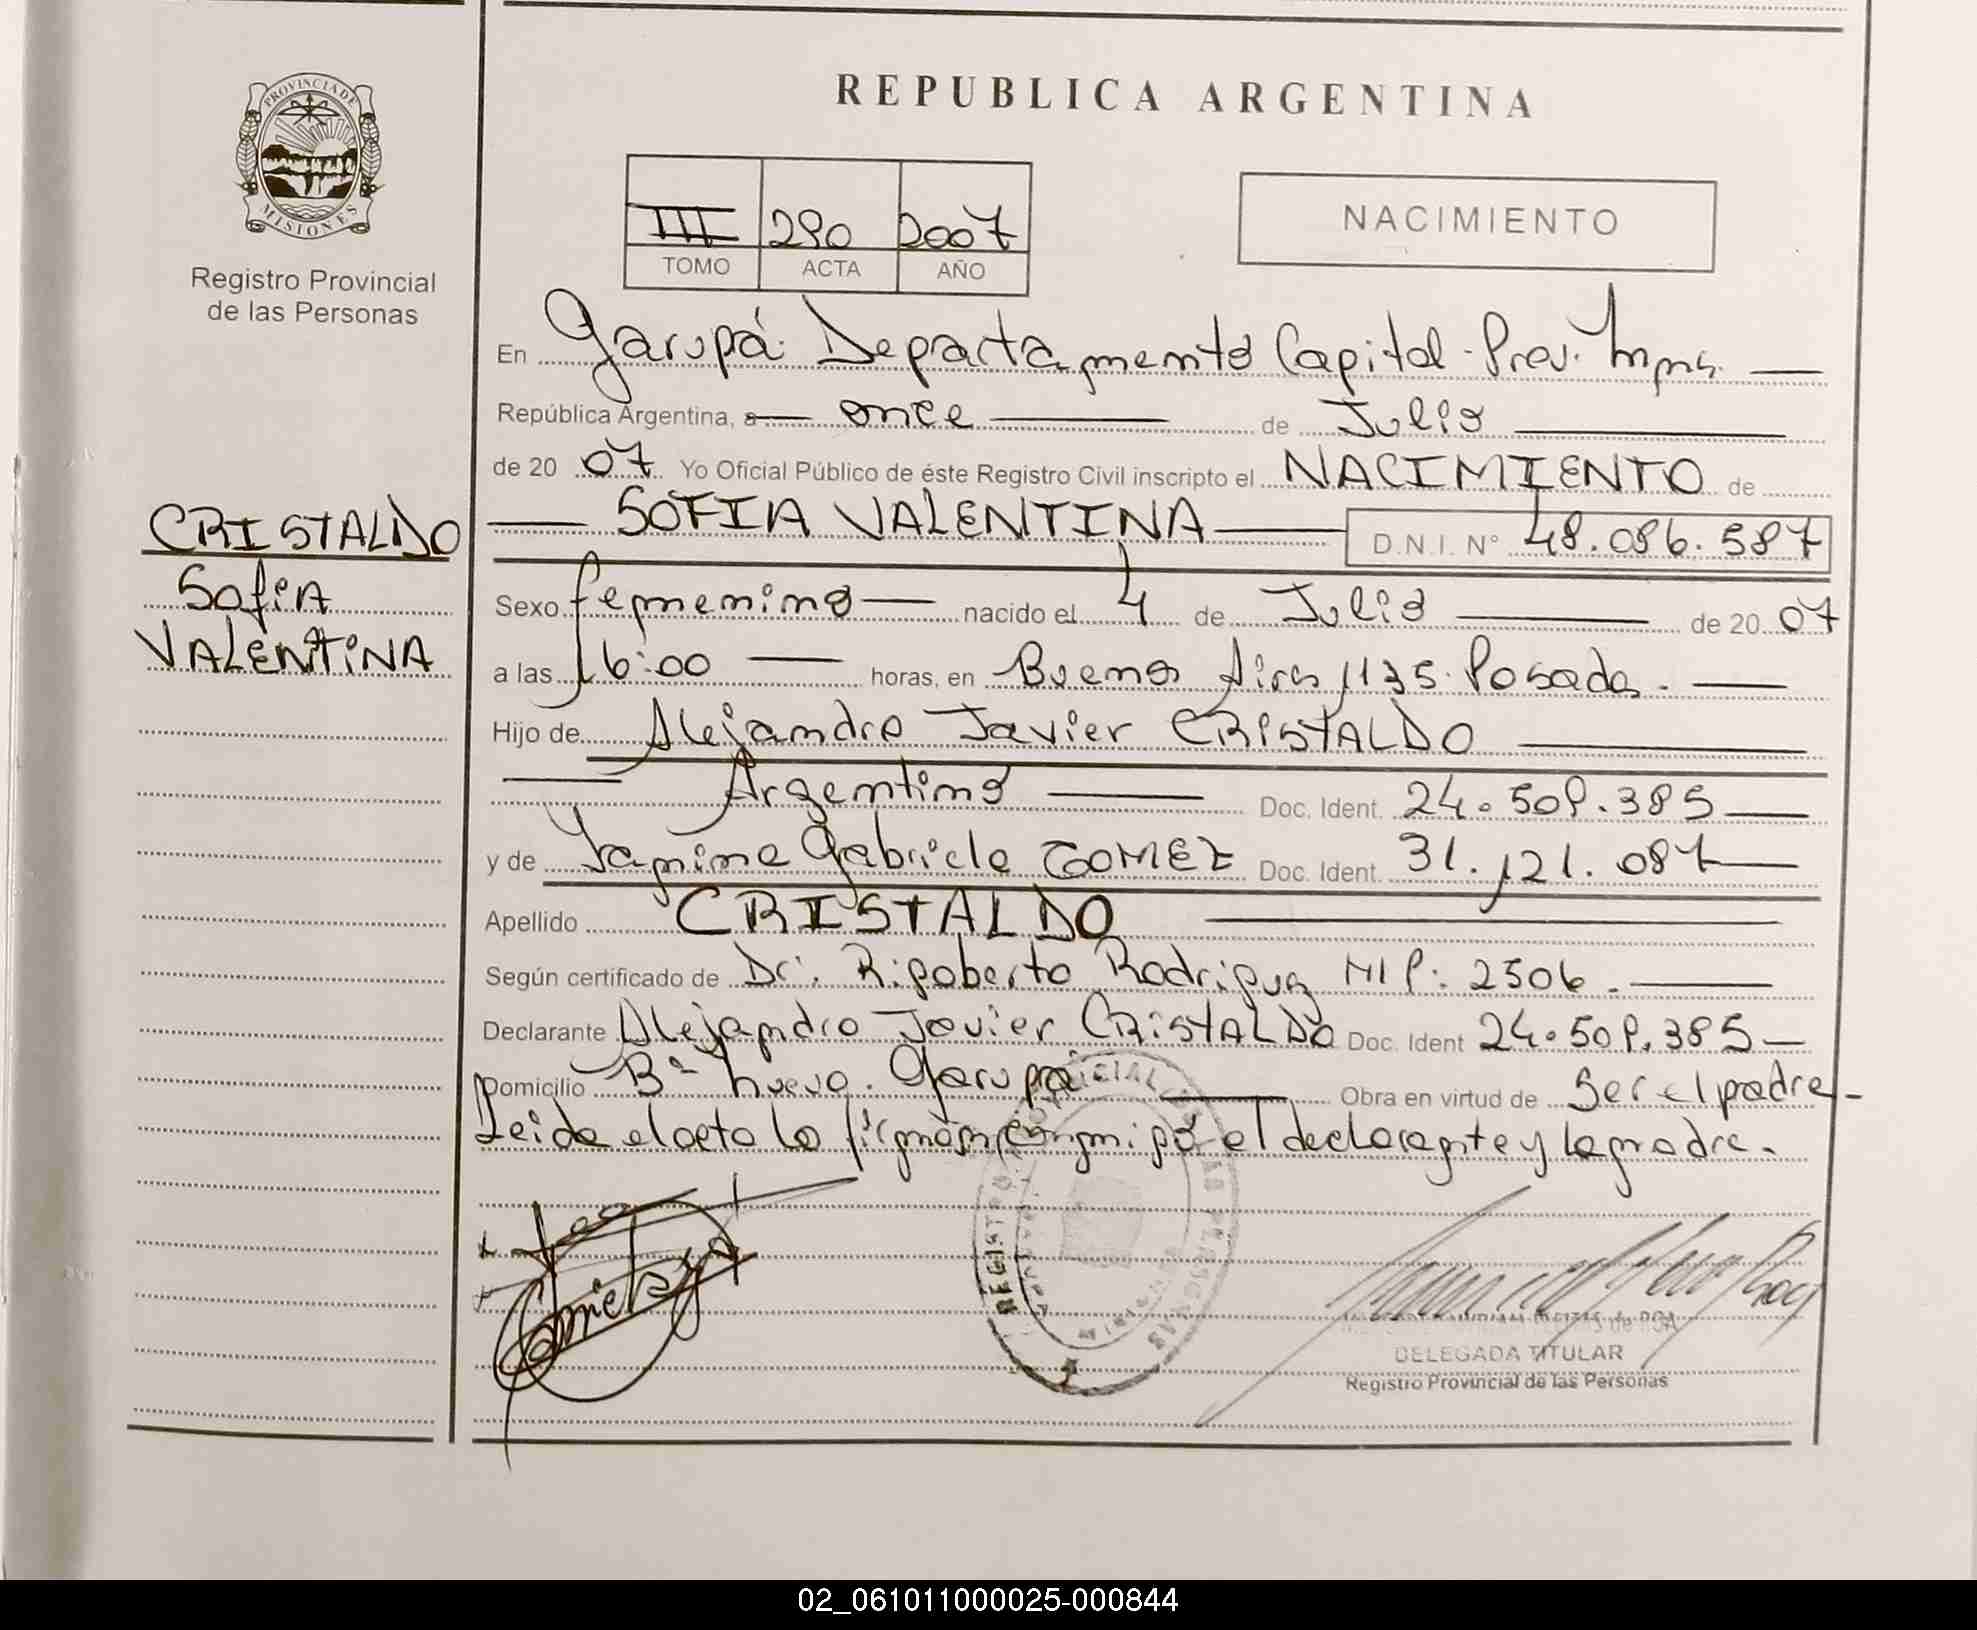 PROVINCIA DE
MISIONES
Registro Provincial
de las Personas
CRISTALDO
Sofia
VALENTINA
REPUBLICA ARGENTINA
III 290 2007
TOMO ACTA AÑO
NACIMIENTO
En Garupá Departamento Capital - Prov. Mnes.
República Argentina, a once de Julio
de 20 07 Yo Oficial Público de éste Registro Civil inscripto el NACIMIENTO de
SOFIA VALENTINA D.N.I. N° 48.086.587
Sexo femenino nacido el 4 de Julio de 20 07
a las 16:00 horas, en Buenos Aires 1135. Posadas.
Hijo de Alejandro Javier CRISTALDO
Argentino Doc. Ident. 24.509.385
y de Yanina Gabriela GOMEZ Doc. Ident. 31.121.087
Apellido CRISTALDO
Según certificado de Dr. Rigoberto Rodriguez MP: 2506.
Declarante Alejandro Javier CRISTALDO Doc. Ident 24.509.385
Domicilio B° nuevo. Garupá Obra en virtud de Ser el padre
Leida el acta la firman conmigo el declarante y la madre.
DELEGADA TITULAR
Registro Provincial de las Personas
02_061011000025-000844